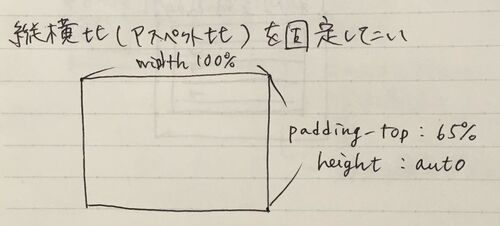 縦横比(アスペット比)を固定してこい
width 100%
padding-top : 65%
height : auto